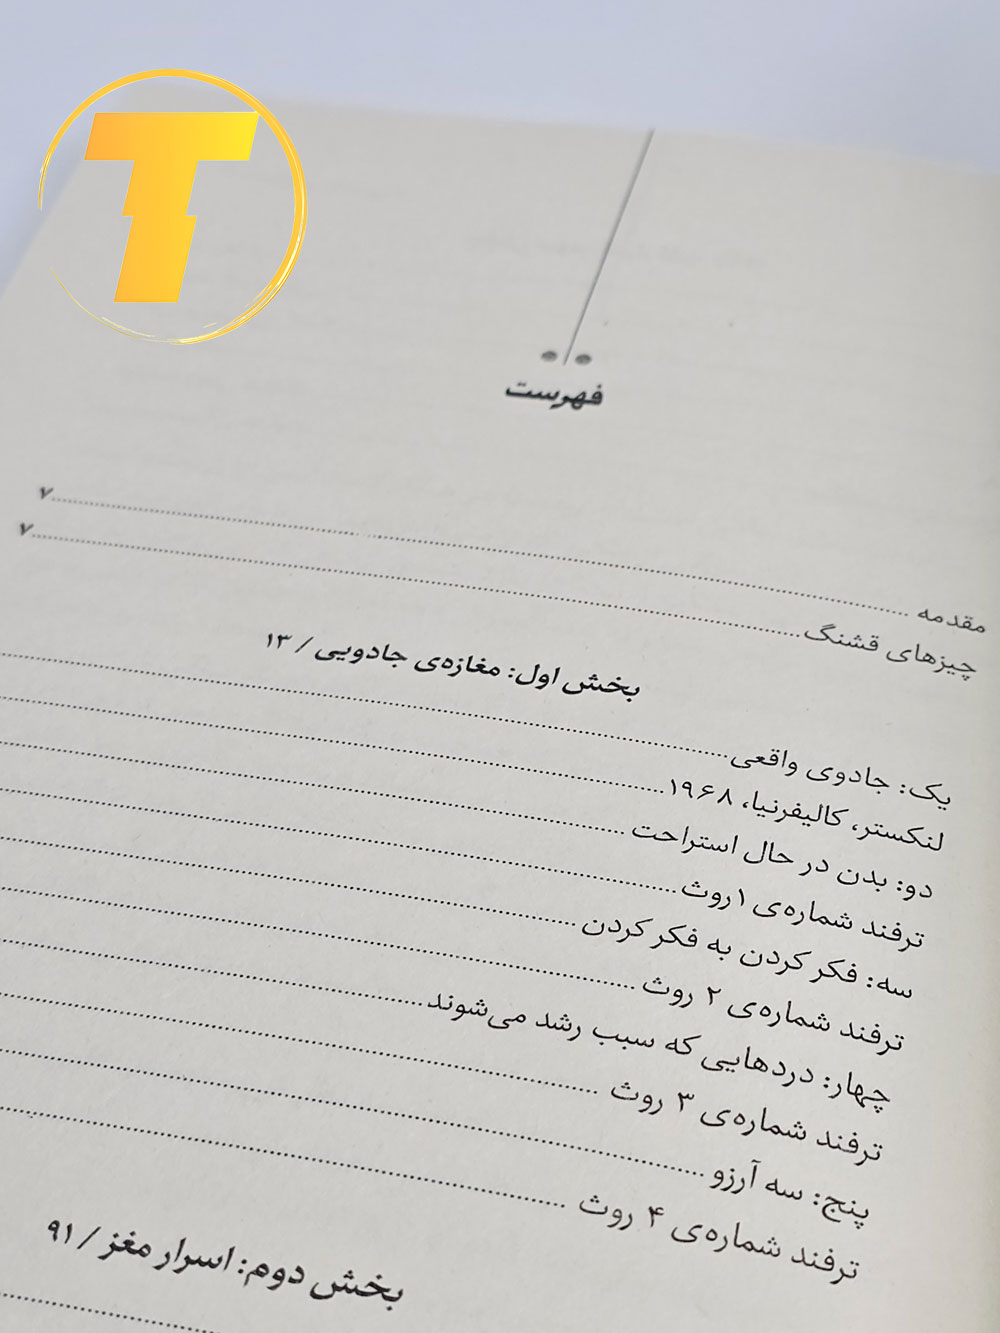 T
فهرست
مقدمه ........ ۷
چیزهای قشنگ ........ ۷
بخش اول: مغازه‌ی جادویی / ۱۳
یک: جادوی واقعی ........
لنکستر، کالیفرنیا، ۱۹۶۸ ........
دو: بدن در حال استراحت ........
ترفند شماره‌ی ۱ روث ........
سه: فکر کردن به فکر کردن ........
ترفند شماره‌ی ۲ روث ........
چهار: دردهایی که سبب رشد می‌شوند ........
ترفند شماره‌ی ۳ روث ........
پنج: سه آرزو ........
ترفند شماره‌ی ۴ روث ........
بخش دوم: اسرار مغز / ۹۱